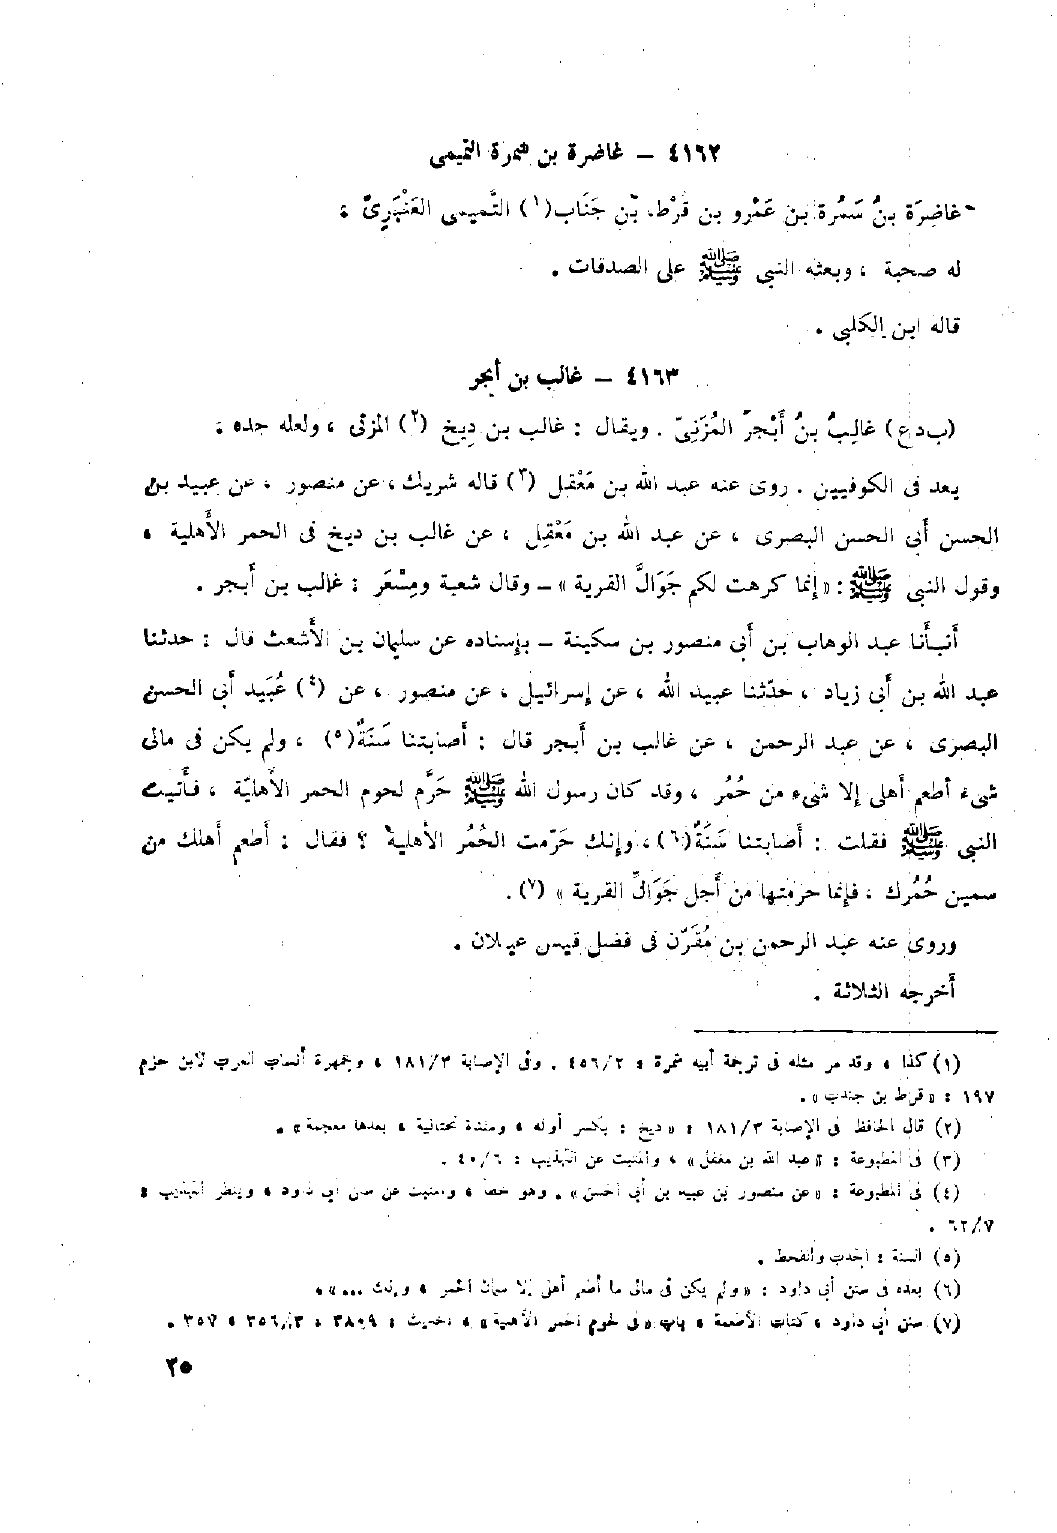 ٤١٦٢ – غاضرة بن سمرة التميمى
غاضِرَة بنُ سَمُرة بن عَمْرو بن قُرْط بن جَنَاب(١) التَّميمى العَنْبَرِىّ ،
له صحبة ، وبعثه النبى ﷺ على الصدقات .
قاله ابن الكلبى .
٤١٦٣ – غالب بن أبجر
(ب د ع) غالِبُ بنُ أَبْجرَ المُزَنىّ . ويقال : غالب بن دِيخ (٢) المزنى ، ولعله جده ،
يعد فى الكوفيين . روى عنه عبد الله بن مَعْقل (٣) قاله شريك ، عن منصور ، عن عبيد بن
الحسن أبى الحسن البصرى ، عن عبد الله بن مَعْقِل ، عن غالب بن ديخ فى الحمر الأهلية ،
وقول النبى ﷺ : «إنما كرهت لكم جَوَالَّ القرية» – وقال شعبة ومِسْعَر : غالب بن أبجر .
أنبأنا عبد الوهاب بن أبى منصور بن سكينة – بإسناده عن سليمان بن الأشعث قال : حدثنا
عبد الله بن أبى زياد ، حدّثنا عبيد الله ، عن إسرائيل ، عن منصور ، عن (٤) عُبَيد أبى الحسن
البصرى ، عن عبد الرحمن ، عن غالب بن أبجر قال : أصابتنا سَنَةٌ(٥) ، ولم يكن فى مالى
شىء أطعم أهلى إلا شىء من حُمُر ، وقد كان رسول الله ﷺ حَرَّم لحوم الحمر الأهليّة ، فأتيت
النبى ﷺ فقلت : أصابتنا سَنَةٌ(٦) ، وإنك حَرّمت الحُمُر الأهلية ؟ فقال : أطعم أهلك من
سمين حُمُرك ، فإنما حرمتها من أجل جَوَالِّ القرية » (٧) .
وروى عنه عبد الرحمن بن مُقَرّن فى فضل قيس عيلان .
أخرجه الثلاثة .
(١) كذا ، وقد مر مثله فى ترجمة أبيه سمرة : ٤٥٦/٢ . وفى الإصابة ١٨١/٣ ، وجمهرة أنساب العرب لابن حزم
١٩٧ : « قرط بن جندب » .
(٢) قال الحافظ فى الإصابة ١٨١/٣ : « ديخ : بكسر أوله ، ومثناة تحتانية ، بعدها معجمة » .
(٣) فى المطبوعة : « عبد الله بن مغفل » ، والمثبت عن التهذيب : ٤٠/٦ .
(٤) فى المطبوعة : « عن منصور بن عبيد بن أبى الحسن » . وهو خطأ ، والمثبت عن سنن أبى داود ، وينظر التهذيب :
٦٢/٧ .
(٥) السنة : الجدب والقحط .
(٦) بعده فى سنن أبى داود : « ولم يكن فى مالى ما أطعم أهلى إلا سمان الحمر ، وإنك ... » .
(٧) سنن أبى داود ، كتاب الأطعمة ، باب « فى لحوم الحمر الأهلية » ، الحديث : ٣٨٠٩ ، ٣٥٦/٣ ، ٣٥٧ .
٢٥